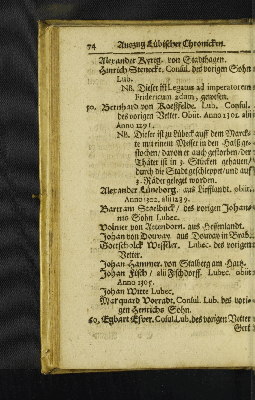 74 Auszug Lübischer Chronicken.
Alexander Kyrig. von Stadthagen.
Hinrich Stenecke. Consul. des vorigen Sohn
Lub.
NB. Dieser ist Legatus ad imperatorem
Fridericum 2dum, gewesen.
50. Bernhard von Koesffelde. Lub. Consul.
des vorigen Vetter. Obiit. Anno 1301. alii
Anno 1291.
NB. Dieser ist zu Lübeck auff dem Marck
te mit einem Messer in den Halß ge-
stochen/ davon er auch gestorben/ der
Thäter ist in 3. Stücken gehauen/
durch die Stadt geschleppet/ und auff
3. Räder geleget worden.
Alexander Lüneborg. aus Lieffland. obiit.
Anno 1302. alii 1289.
Bartram Staelbuck/ des vorigen Johan-
nis Sohn Lubec.
Volmer von Attendorn. aus Hessenlandt.
Johan von Douvay. aus Douvay in Brab.
Gottschalck Wesseler. Lubec. des vorigen
Vetter.
Johan Hammer. von Stalberg am Hartz.
Johan Fisch/ alii Fischdorff. Lubec. obiit
Anno 1305.
Johan Witte Lubec.
Marquard Vorradt. Consul. Lub. des vori-
gen Henrichs Sohn.
60. Egbart Esver. Cosul. Lub. des vorigen Vetter
Gert